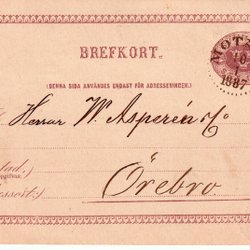 BREFKORT.
(DENNA SIDA ANVÄNDES ENDAST FÖR ADRESSERINGEN.)
MOT
10
1887
Herrar W. Asperén & Co.
Örebro.